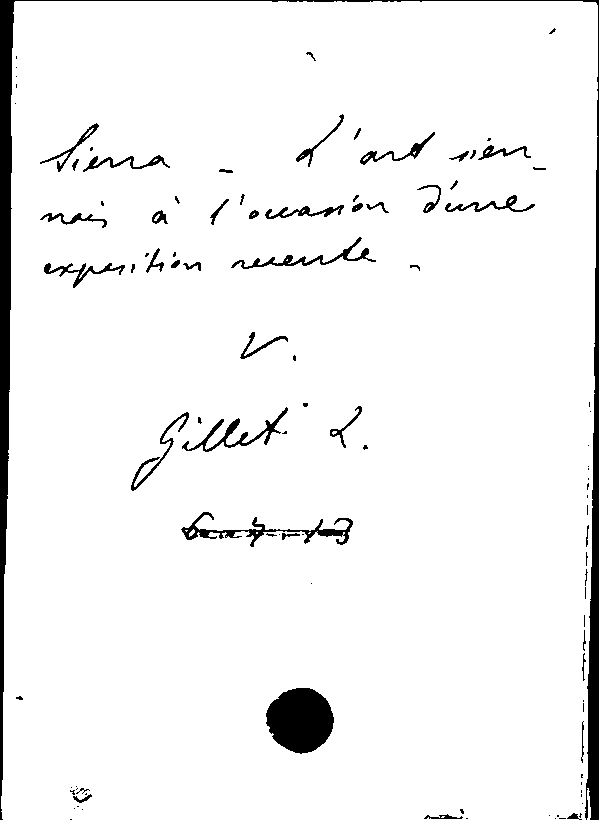 Sienna - L'art sien-
nois à l'occasion d'une
exposition recente -
V.
Gillet L.
6-7-13